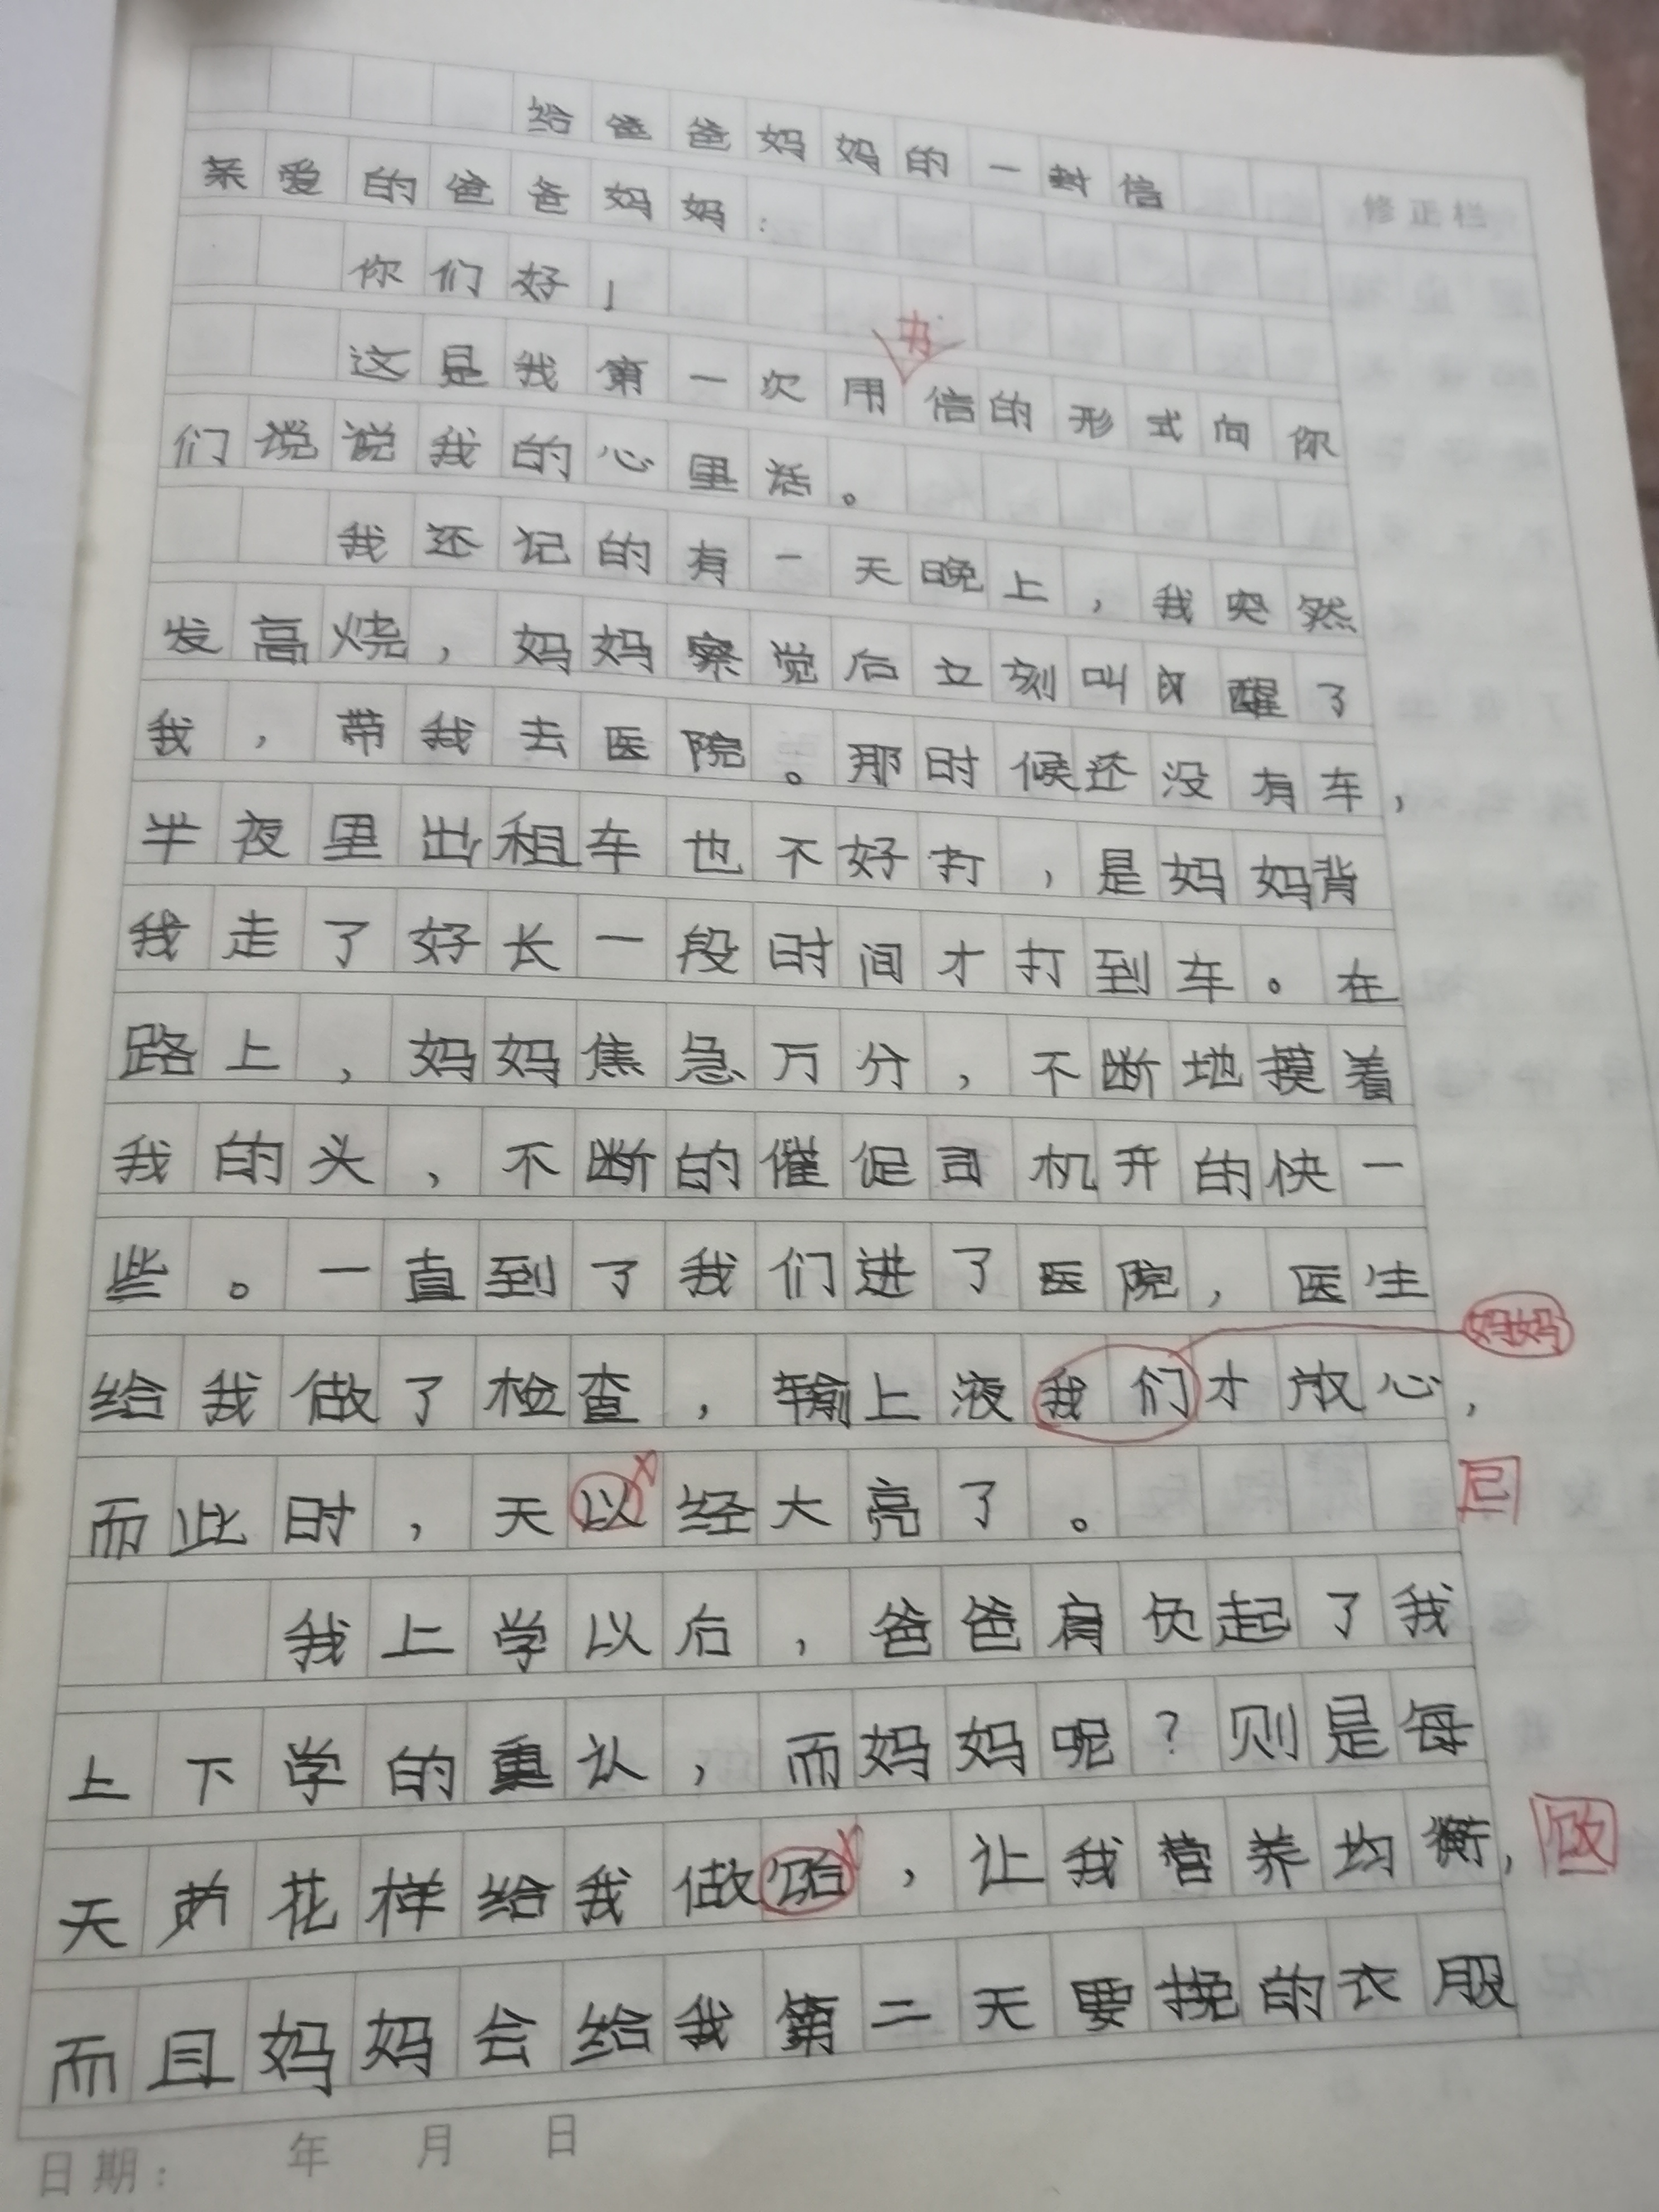 给爸爸妈妈的一封信
修正栏
亲爱的爸爸妈妈：
你们好！
书
这是我第一次用信的形式向你
们说说我的心里话。
我还记的有一天晚上，我突然
发高烧，妈妈察觉后立刻叫醒了
我，带我去医院。那时候还没有车，
半夜里出租车也不好打，是妈妈背
我走了好长一段时间才打到车。在
路上，妈妈焦急万分，不断地摸着
我的头，不断的催促司机开的快一
些。一直到了我们进了医院，医生
妈妈
给我做了检查，输上液我们才放心，
而此时，天以经大亮了。
已
我上学以后，爸爸肩负起了我
上下学的重认，而妈妈呢？则是每
天花样给我做，让我营养均衡，
而且妈妈会给我第二天要换的衣服
日期： 年 月 日